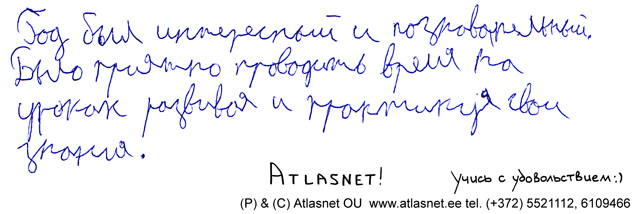 Год был интересный и познавательный.
Было приятно проводить время на
уроках развивая и практикуя свои
знания.
ATLASNET!
Учись с удовольствием:)
(P) & (C) Atlasnet OU www.atlasnet.ee tel. (+372) 5521112, 6109466